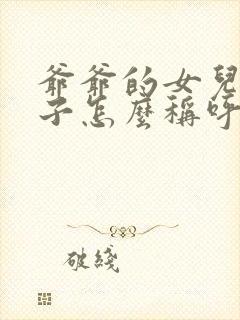 爺爺的女兒
子怎麼稱呼
破綫